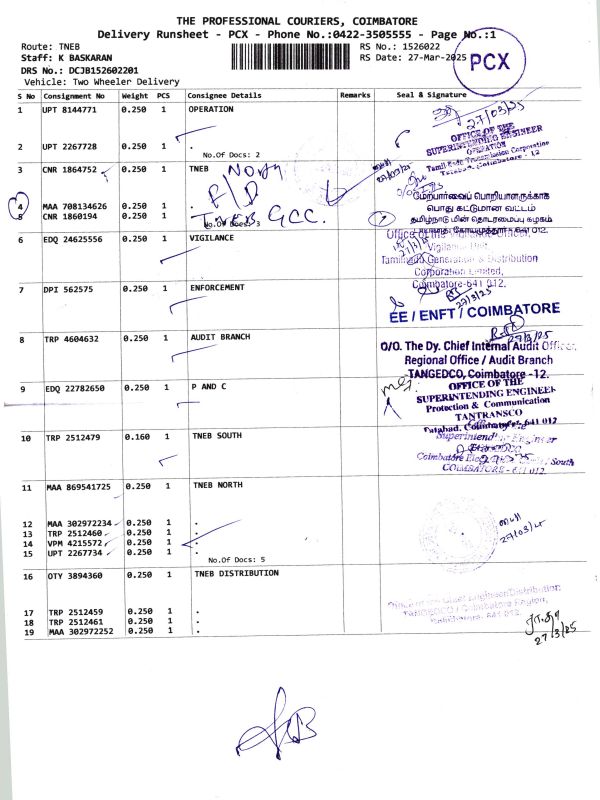 THE PROFESSIONAL COURIERS, COIMBATORE
Delivery Runsheet - PCX - Phone No.:0422-3505555 - Page No.:1
Route: TNEB
RS No.: 1526022
Staff: K BASKARAN
RS Date: 27-Mar-2025
PCX
DRS No.: DCJB152602201
Vehicle: Two Wheeler Delivery
S No Consignment No Weight PCS Consignee Details Remarks Seal & Signature
1 UPT 8144771 0.250 1 OPERATION
27/03/25
OFFICE OF THE
SUPERINTENDING ENGINEER
OPERATION
Tamil Nadu Transmission Corporation
Tatabad, Coimbatore - 12
2 UPT 2267728 0.250 1 .
No.Of Docs: 2
3 CNR 1864752 0.250 1 TNEB
4 MAA 708134626 0.250 1
5 CNR 1860194 0.250 1
No.Of Docs: 3
மேற்பார்வைப் பொறியாளருக்காக
பொது கட்டுமான வட்டம்
தமிழ்நாடு மின் தொடரமைப்பு கழகம்
6 EDQ 24625556 0.250 1 VIGILANCE
Tamilnadu Generation & Distribution
Corporation Limited,
Coimbatore-641 012.
7 DPI 562575 0.250 1 ENFORCEMENT
27/3/25
EE / ENFT / COIMBATORE
8 TRP 4604632 0.250 1 AUDIT BRANCH
27/3/25
O/O. The Dy. Chief Internal Audit Officer,
Regional Office / Audit Branch
TANGEDCO, Coimbatore -12.
9 EDQ 22782650 0.250 1 P AND C
OFFICE OF THE
SUPERINTENDING ENGINEER
Protection & Communication
TANTRANSCO
Tatabad, Coimbatore-641 012
10 TRP 2512479 0.160 1 TNEB SOUTH
Superintending Engineer
COIMBATORE - 641 012.
11 MAA 869541725 0.250 1 TNEB NORTH
12 MAA 302972234 0.250 1 .
13 TRP 2512460 0.250 1 .
14 VPM 4215572 0.250 1 .
15 UPT 2267734 0.250 1 .
No.Of Docs: 5
27/03/25
16 OTY 3894360 0.250 1 TNEB DISTRIBUTION
17 TRP 2512459 0.250 1 .
18 TRP 2512461 0.250 1 .
19 MAA 302972252 0.250 1 .
27/3/25